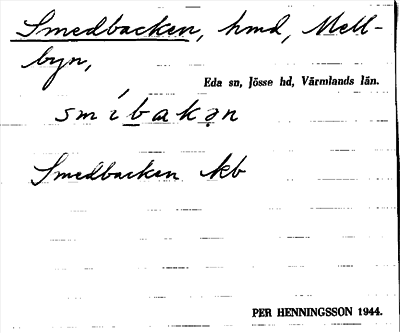 Smedbacken, hmd, Mell-
byn,
Eda sn, Jösse hd, Värmlands län.
smíbakən
Smedbacken kb
PER HENNINGSSON 1944.